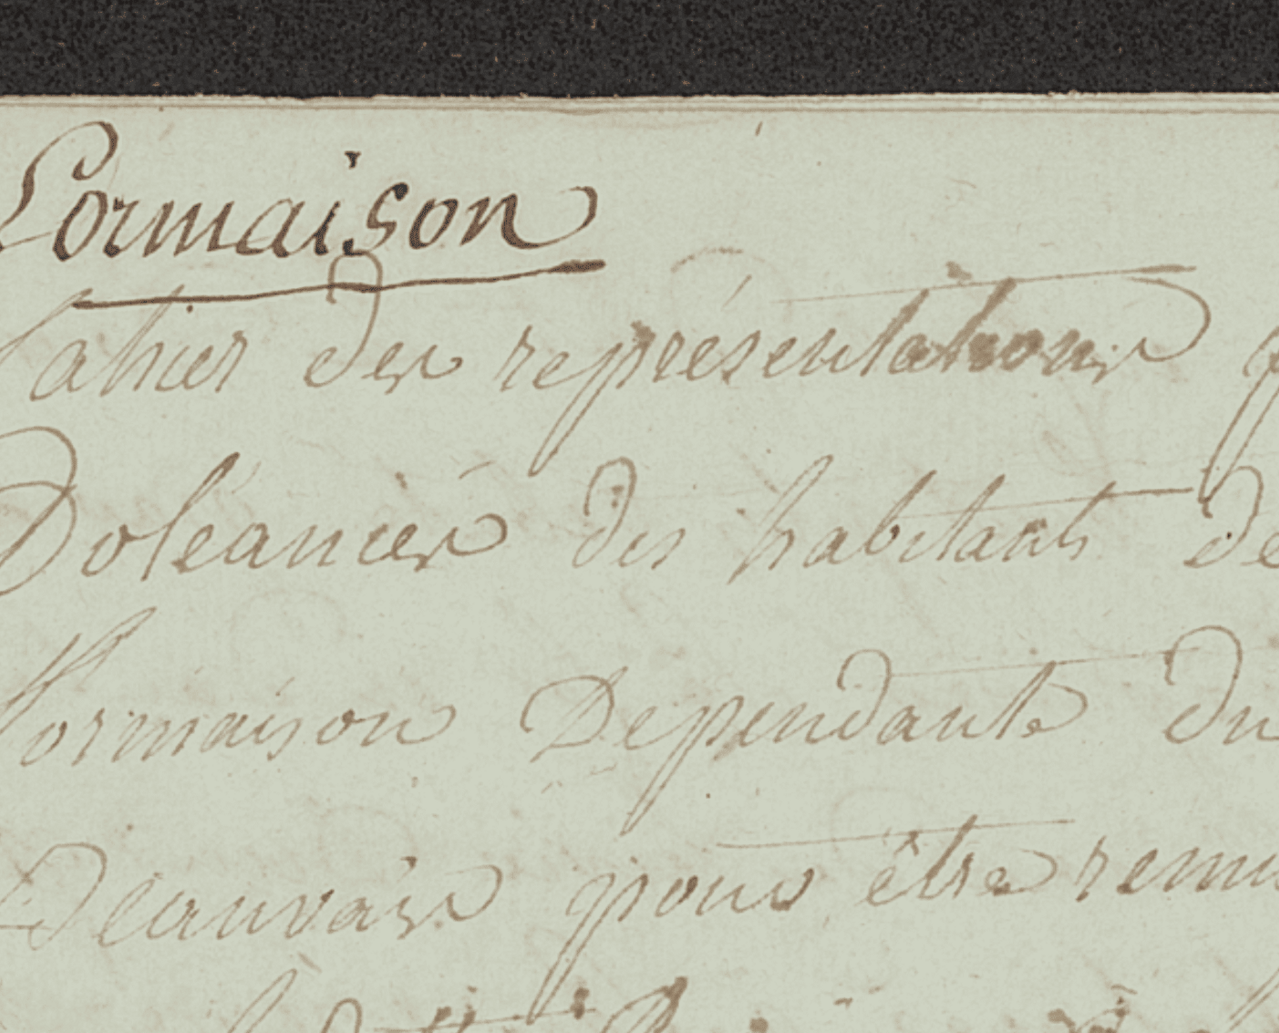 Lormaison
Cahier des représentations
Doléances des habitants de
Lormaison Dependante du
Beauvais pour être remis